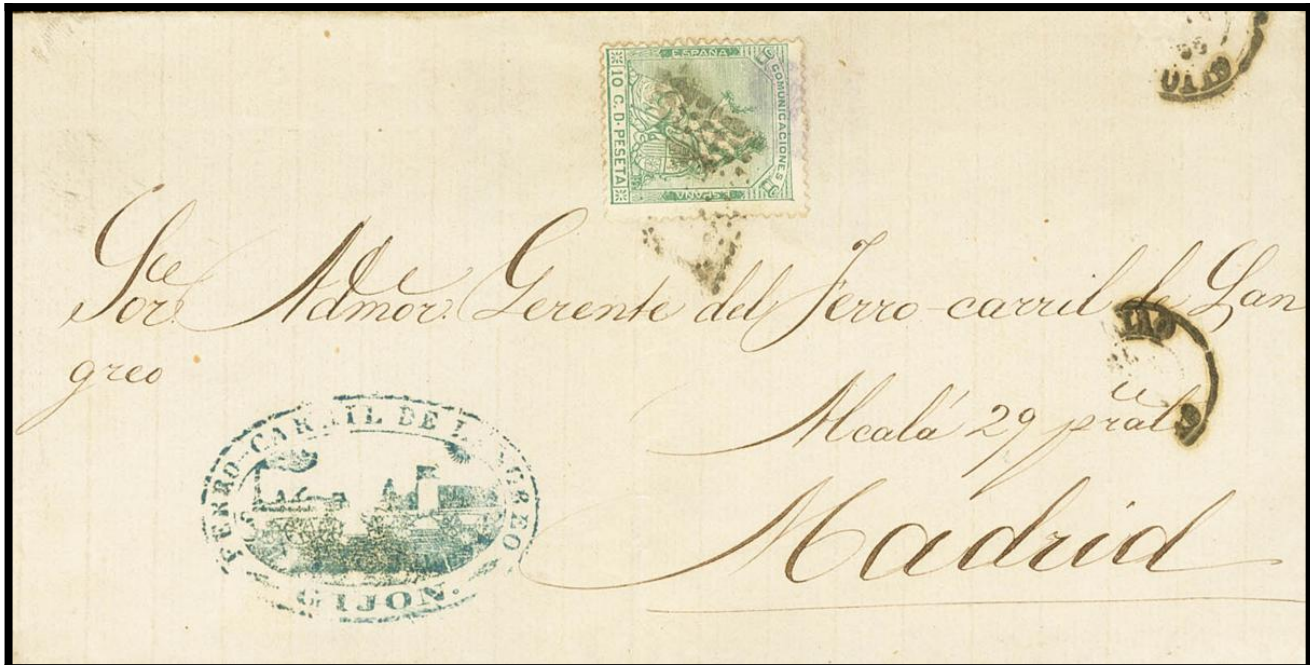 ESPAÑA
COMUNICACIONES
10 C. D. PESETA
Sor. Admor. Gerente del Ferro-carril de Lan
greo
Alcalá 29 pral
Madrid
FERRO-CARRIL DE LANGREO
GIJON.